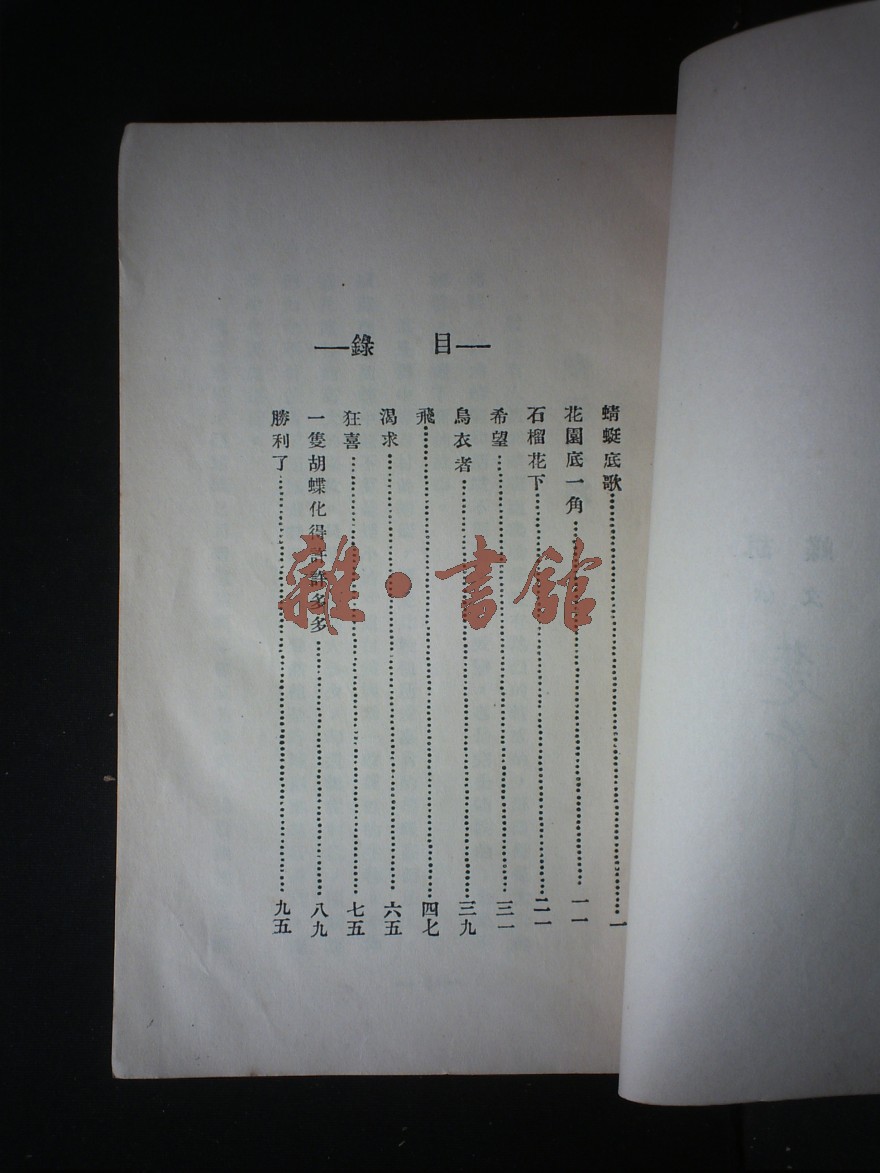 —目　錄—
蜻蜓底歌……一
花園底一角……一一
石榴花下……二一
希望……三一
烏衣者……三九
飛……四七
渴求……六五
狂喜……七五
一隻胡蝶化得許許多多……八九
勝利了……九五
雜·書館